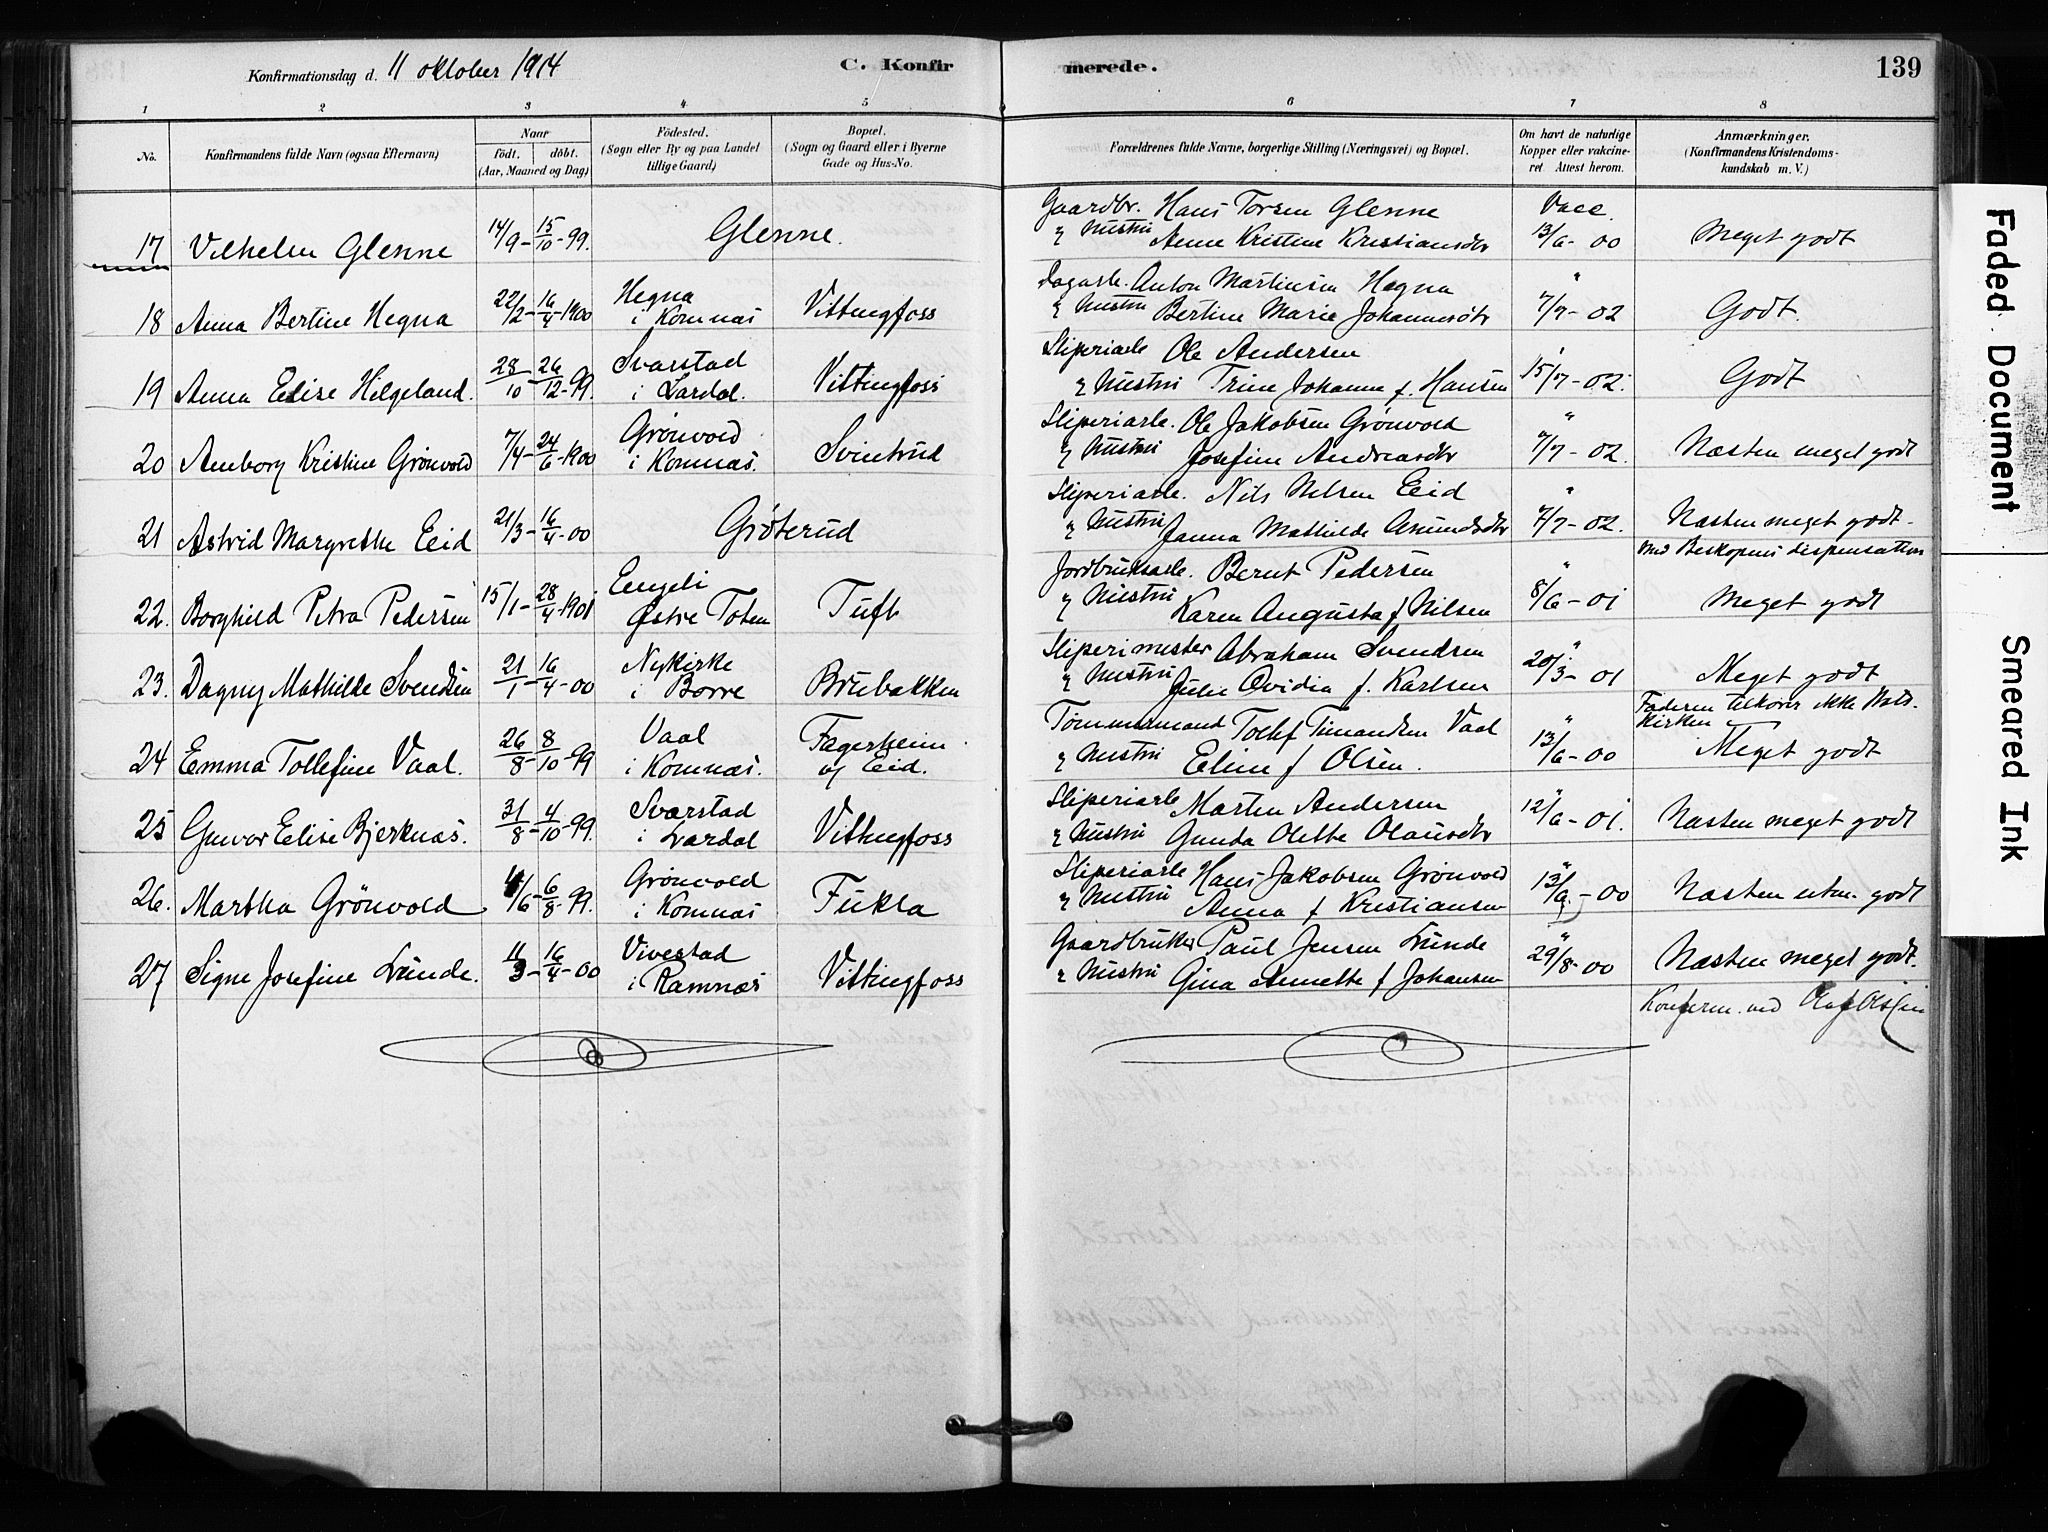 Konfirmationsdag d. 11 oktober 1914
C. Konfirmerede.
139
1 2 3 4 5 6 7 8
No.
Konfirmandens fulde Navn (ogsaa Efternavn)
Naar
födt. döbt.
(Aar, Maaned og Dag)
Födested.
(Sogn eller By og paa Landet
tillige Gaard)
Bopæl.
(Sogn og Gaard eller i Byerne
Gade og Hus-No.
Forældrenes fulde Navne, borgerlige Stilling (Næringsvei) og Bopæl.
Om havt de naturlige
Kopper eller vakcine-
ret Attest herom.
Anmærkninger.
(Konfirmandens Kristendoms-
kundskab m. V.)
17 Vilhelm Glenne 14/9 - 15/10 - 99. Glenne.
Gaardbr. Hans Torsen Glenne
& Hustru Anne Kristine Kristiansdtr
Vacc. 13/6 - 00 Meget godt
18 Anna Bertine Hegna 22/2 - 16/4 - 1900 Hegna i Komnæs Vittingfoss
Dagarb. Anton Martinsen Hegna
& Hustru Bertine Marie Johannesdtr
" 7/7 - 02 Godt.
19 Anna Elise Helgeland. 28/10 - 26/12 - 99. Svarstad i Lardal. Vittingfoss
Sliperiarb Ole Andersen
& Hustru Trine Johanne f. Hansen
15/7 - 02 Godt
20 Amborg Kristine Grönvold 7/4 - 24/6 - 1900 Grönvold i Komnæs. Svinerud
Sliperiarb. Ole Jakobsen Grönvold
& Hustru Josefine Andreasdtr
" 7/7 - 02. Næsten meget godt
21 Astrid Margrethe Eeid 21/3 - 16/4 - 00 Gröterud
Sliperiarb. Nils Nilsen Eeid
& Hustru Janna Mathilde Amundsdtr
" 7/7 - 02. Næsten meget godt.
22. Borghild Petra Pedersen 15/1 - 28/4 - 1901 Engeli Østre Toten Tuft
Jordbruksarb. Bernt Pedersen
& Hustru Karen Augusta f Nilsen
" 8/6 - 01
med Biskopens dispensation
Meget godt
23. Dagny Mathilde Svendsen 21/1 - 16/4 - 00 Nykirke i Borre Brubakken
Sliperimester Abraham Svendsen
& Hustru Julie Ovidia f. Karlsen
" 20/3 - 01 Meget godt
24 Emma Tollefine Vaal. 26/8 - 8/10 - 99 Vaal i Komnæs. Fagerheim af Eid.
Tömmermand Tollef Timandsen Vaal
& Hustru Eline f Olsen.
" 13/6 - 00
Faderen tilhører ikke Stats-
kirken
Meget godt
25 Gunvor Elise Bjerknæs. 31/8 - 4/10 - 99. Svarstad i Lardal Vittingfoss
Sliperiarb Marten Andersen
& Hustru Gunda Olette Olausdtr
" 12/6 - 01. Næsten meget godt
26. Martha Grönvold 4/6 - 6/8 - 99. Grönvold i Komnæs Fuksa
Sliperiarb Hans Jakobsen Grönvold
& Hustru Anna f Kristiansen
" 13/6 - 00 Næsten utm. godt
27 Signe Josefine Lunde. 11/3 - 16/4 - 00 Vivestad i Ramnæs Vittingfoss
Gaardbruker Paul Jensen Lunde
& Hustru Gina Annette f Johansen
" 29/8 - 00 Næsten meget godt.
Konferer. ved Olaf Olsen
Faded Document
Smeared Ink